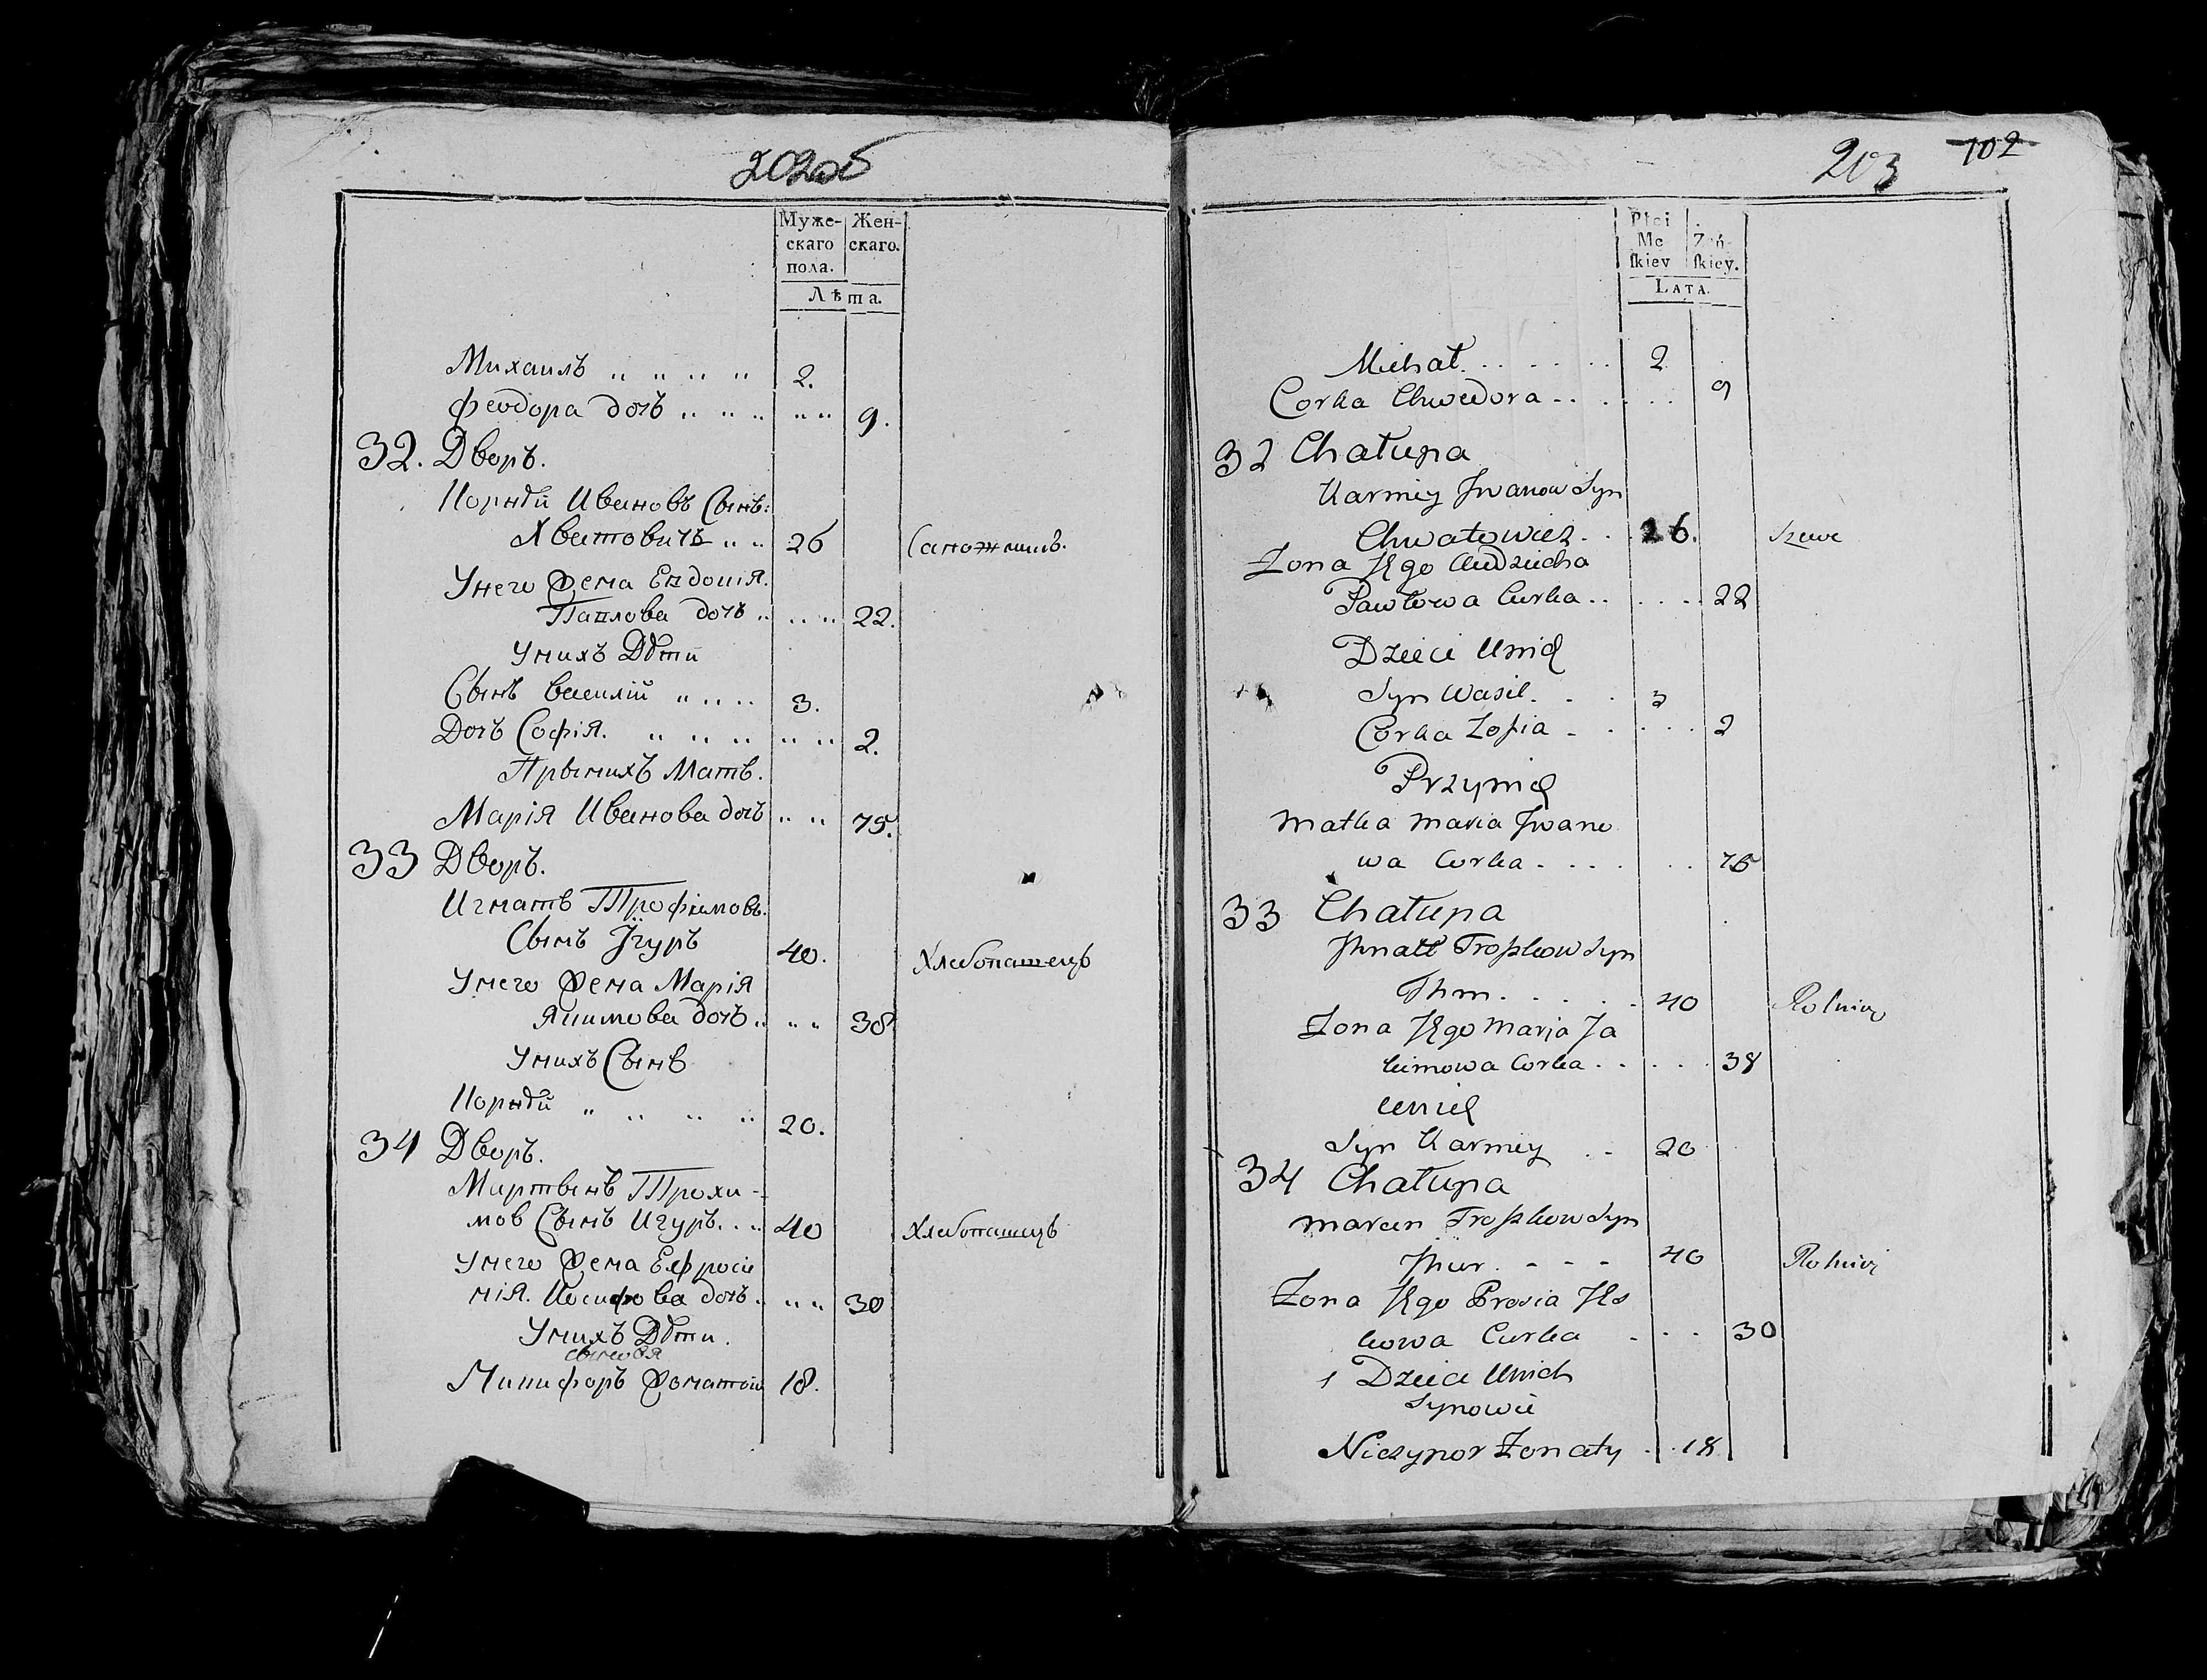 202об
Муже- Жен-
скаго скаго.
пола.
Лѣта.
Михаилъ 2.
Феодора дочь 9.
32. Дворъ.
Корнѣй Ивановъ Сынъ:
Хватовичь 26 Сапожникъ.
Унего Жена Евдокія.
Павлова дочь 22.
Унихъ Дѣти
Сынъ Василій 3.
Дочь Софія. 2.
Прынихъ Мать.
Марія Иванова дочь 75.
33 Дворъ.
Игнатъ Трофимовъ.
Сынъ Ігуръ 40. Хлебопашецъ
Унего Жена Марія
Якимова дочь 38
Унихъ Сынъ
Корнѣй 20.
34 Дворъ.
Мартынъ Трохи-
мов Сынъ Игуръ 40 Хлебопашецъ
Унего Жена Ефроси
нія. Иосифова дочь 30
Унихъ Дѣти.
сыновя
Никифоръ Жонатой 18.
203 102
Płci
Mę Żeń-
ſkiey ſkiey.
LATA.
Michał 2
Corka Chwedora 9
32 Chałupa
Karniey Jwanow Syn
Chwatowicz 26. Szewc
Żona Jego Audziucha
Pawłowa Curka 22
Dzieci Unich
Syn Wasil 3
Corka Zofia 2
Przynich
Matka Maria Jwano
wa Curka 75
33 Chałupa
Jhnatt Troszkow Syn
40 Rolnick
Żona Jego Marja Ja
kimowa Corka 38
Unich
Syn Karniey 20
34 Chałupa
Marcin Troszkow Syn
Jhur 40 Rolnick
Żona Jego Prosia
kowa Curka 30
Dzieci Unich
Synowie
Niczypor Żonaty 18